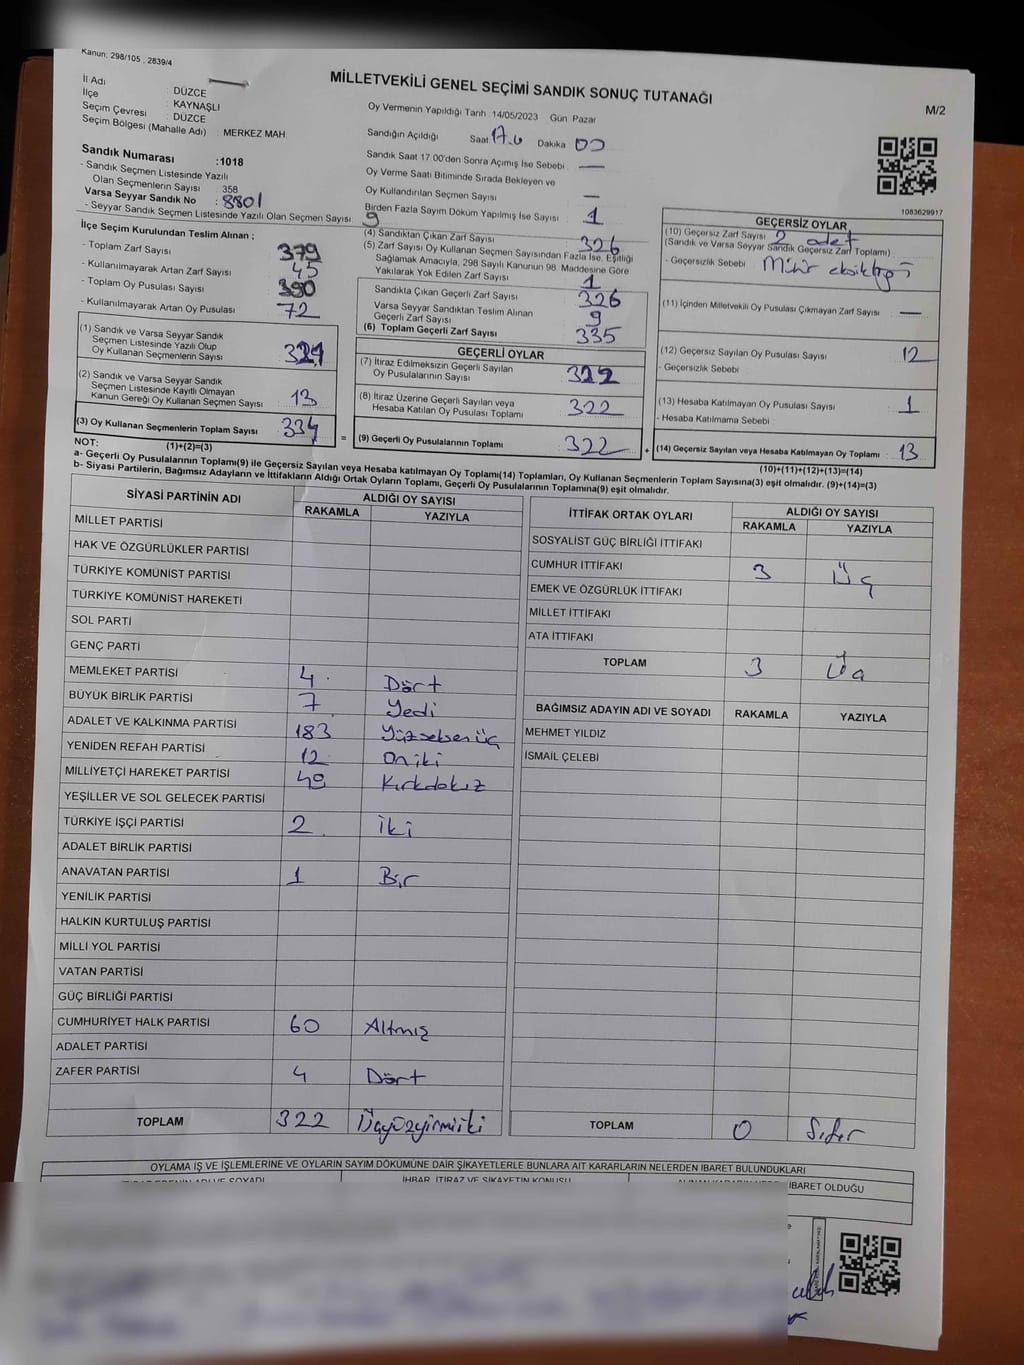 Kanun; 298/105 , 2839/4
MİLLETVEKİLİ GENEL SEÇİMİ SANDIK SONUÇ TUTANAĞI
M/2
İl Adı : DÜZCE
İlçe : KAYNAŞLI
Seçim Çevresi : DÜZCE
Seçim Bölgesi (Mahalle Adı) : MERKEZ MAH.
Sandık Numarası :1018
- Sandık Seçmen Listesinde Yazılı
Olan Seçmenlerin Sayısı 358
Varsa Seyyar Sandık No : 8801
- Seyyar Sandık Seçmen Listesinde Yazılı Olan Seçmen Sayısı: 9
Oy Vermenin Yapıldığı Tarih 14/05/2023 Gün: Pazar
Sandığın Açıldığı Saat Dakika 00
Sandık Saat 17.00'den Sonra Açımış İse Sebebi —
Oy Verme Saati Bitiminde Sırada Bekleyen ve
Oy Kullandırılan Seçmen Sayısı —
Birden Fazla Sayım Döküm Yapılmış İse Sayısı 1
1083629917
İlçe Seçim Kurulundan Teslim Alınan ;
- Toplam Zarf Sayısı 379
- Kullanılmayarak Artan Zarf Sayısı 45
- Toplam Oy Pusulası Sayısı 390
- Kullanılmayarak Artan Oy Pusulası 72
(1) Sandık ve Varsa Seyyar Sandık
Seçmen Listesinde Yazılı Olup
Oy Kullanan Seçmenlerin Sayısı 321
(2) Sandık ve Varsa Seyyar Sandık
Seçmen Listesinde Kayıtlı Olmayan
Kanun Gereği Oy Kullanan Seçmen Sayısı 13
(3) Oy Kullanan Seçmenlerin Toplam Sayısı 334
(1)+(2)=(3)
(4) Sandıktan Çıkan Zarf Sayısı 326
(5) Zarf Sayısı Oy Kullanan Seçmen Sayısından Fazla İse, Eşitliği
Sağlamak Amacıyla, 298 Sayılı Kanunun 98. Maddesine Göre
Yakılarak Yok Edilen Zarf Sayısı 1
Sandıkta Çıkan Geçerli Zarf Sayısı 326
Varsa Seyyar Sandıktan Teslim Alınan
Geçerli Zarf Sayısı 9
(6) Toplam Geçerli Zarf Sayısı 335
GEÇERLİ OYLAR
(7) İtiraz Edilmeksizin Geçerli Sayılan
Oy Pusulalarının Sayısı 322
(8) İtiraz Üzerine Geçerli Sayılan veya
Hesaba Katılan Oy Pusulası Toplamı 322
= (9) Geçerli Oy Pusulalarının Toplamı 322 +
GEÇERSİZ OYLAR
(10) Geçersiz Zarf Sayısı 2 adet
(Sandık ve Varsa Seyyar Sandık Geçersiz Zarf Toplamı)
- Geçersizlik Sebebi Mühür eksikliği
(11) İçinden Milletvekili Oy Pusulası Çıkmayan Zarf Sayısı —
(12) Geçersiz Sayılan Oy Pusulası Sayısı 12
- Geçersizlik Sebebi
(13) Hesaba Katılmayan Oy Pusulası Sayısı 1
- Hesaba Katılmama Sebebi
(14) Geçersiz Sayılan veya Hesaba Katılmayan Oy Toplamı 13
(10)+(11)+(12)+(13)=(14)
NOT:
a- Geçerli Oy Pusulasının Toplamı(9) ile Geçersiz Sayılan veya Hesaba katılmayan Oy Toplamı(14) Toplamları, Oy Kullanan Seçmenlerin Toplam Sayısına(3) eşit olmalıdır. (9)+(14)=(3)
b- Siyasi Partilerin, Bağımsız Adayların ve İttifakların Aldığı Ortak Oyların Toplamı, Geçerli Oy Pusulalarının Toplamına(9) eşit olmalıdır.
SİYASİ PARTİNİN ADI ALDIĞI OY SAYISI
RAKAMLA YAZIYLA
MİLLET PARTİSİ
HAK VE ÖZGÜRLÜKLER PARTİSİ
TÜRKİYE KOMÜNİST PARTİSİ
TÜRKİYE KOMÜNİST HAREKETİ
SOL PARTİ
GENÇ PARTİ
MEMLEKET PARTİSİ 4 Dört
BÜYÜK BİRLİK PARTİSİ 7 Yedi
ADALET VE KALKINMA PARTİSİ 183 Yüzseksenüç
YENİDEN REFAH PARTİSİ 12 Oniki
MİLLİYETÇİ HAREKET PARTİSİ 49 Kırkdokuz
YEŞİLLER VE SOL GELECEK PARTİSİ
TÜRKİYE İŞÇİ PARTİSİ 2 İki
ADALET BİRLİK PARTİSİ
ANAVATAN PARTİSİ 1 Bir
YENİLİK PARTİSİ
HALKIN KURTULUŞ PARTİSİ
MİLLİ YOL PARTİSİ
VATAN PARTİSİ
GÜÇ BİRLİĞİ PARTİSİ
CUMHURİYET HALK PARTİSİ 60 Altmış
ADALET PARTİSİ
ZAFER PARTİSİ 4 Dört
TOPLAM 322 Üçyüzyirmiiki
İTTİFAK ORTAK OYLARI ALDIĞI OY SAYISI
RAKAMLA YAZIYLA
SOSYALİST GÜÇ BİRLİĞİ İTTİFAKI
CUMHUR İTTİFAKI 3 Üç
EMEK VE ÖZGÜRLÜK İTTİFAKI
MİLLET İTTİFAKI
ATA İTTİFAKI
TOPLAM 3 Üç
BAĞIMSIZ ADAYIN ADI VE SOYADI RAKAMLA YAZIYLA
MEHMET YILDIZ
İSMAİL ÇELEBİ
TOPLAM 0 Sıfır
OYLAMA İŞ VE İŞLEMLERİNE VE OYLARIN SAYIM DÖKÜMÜNE DAİR ŞİKAYETLERLE BUNLARA AİT KARARLARIN NELERDEN İBARET BULUNDUKLARI
İHBAR, İTİRAZ VE ŞİKAYETİN KONUSU
İBARET OLDUĞU